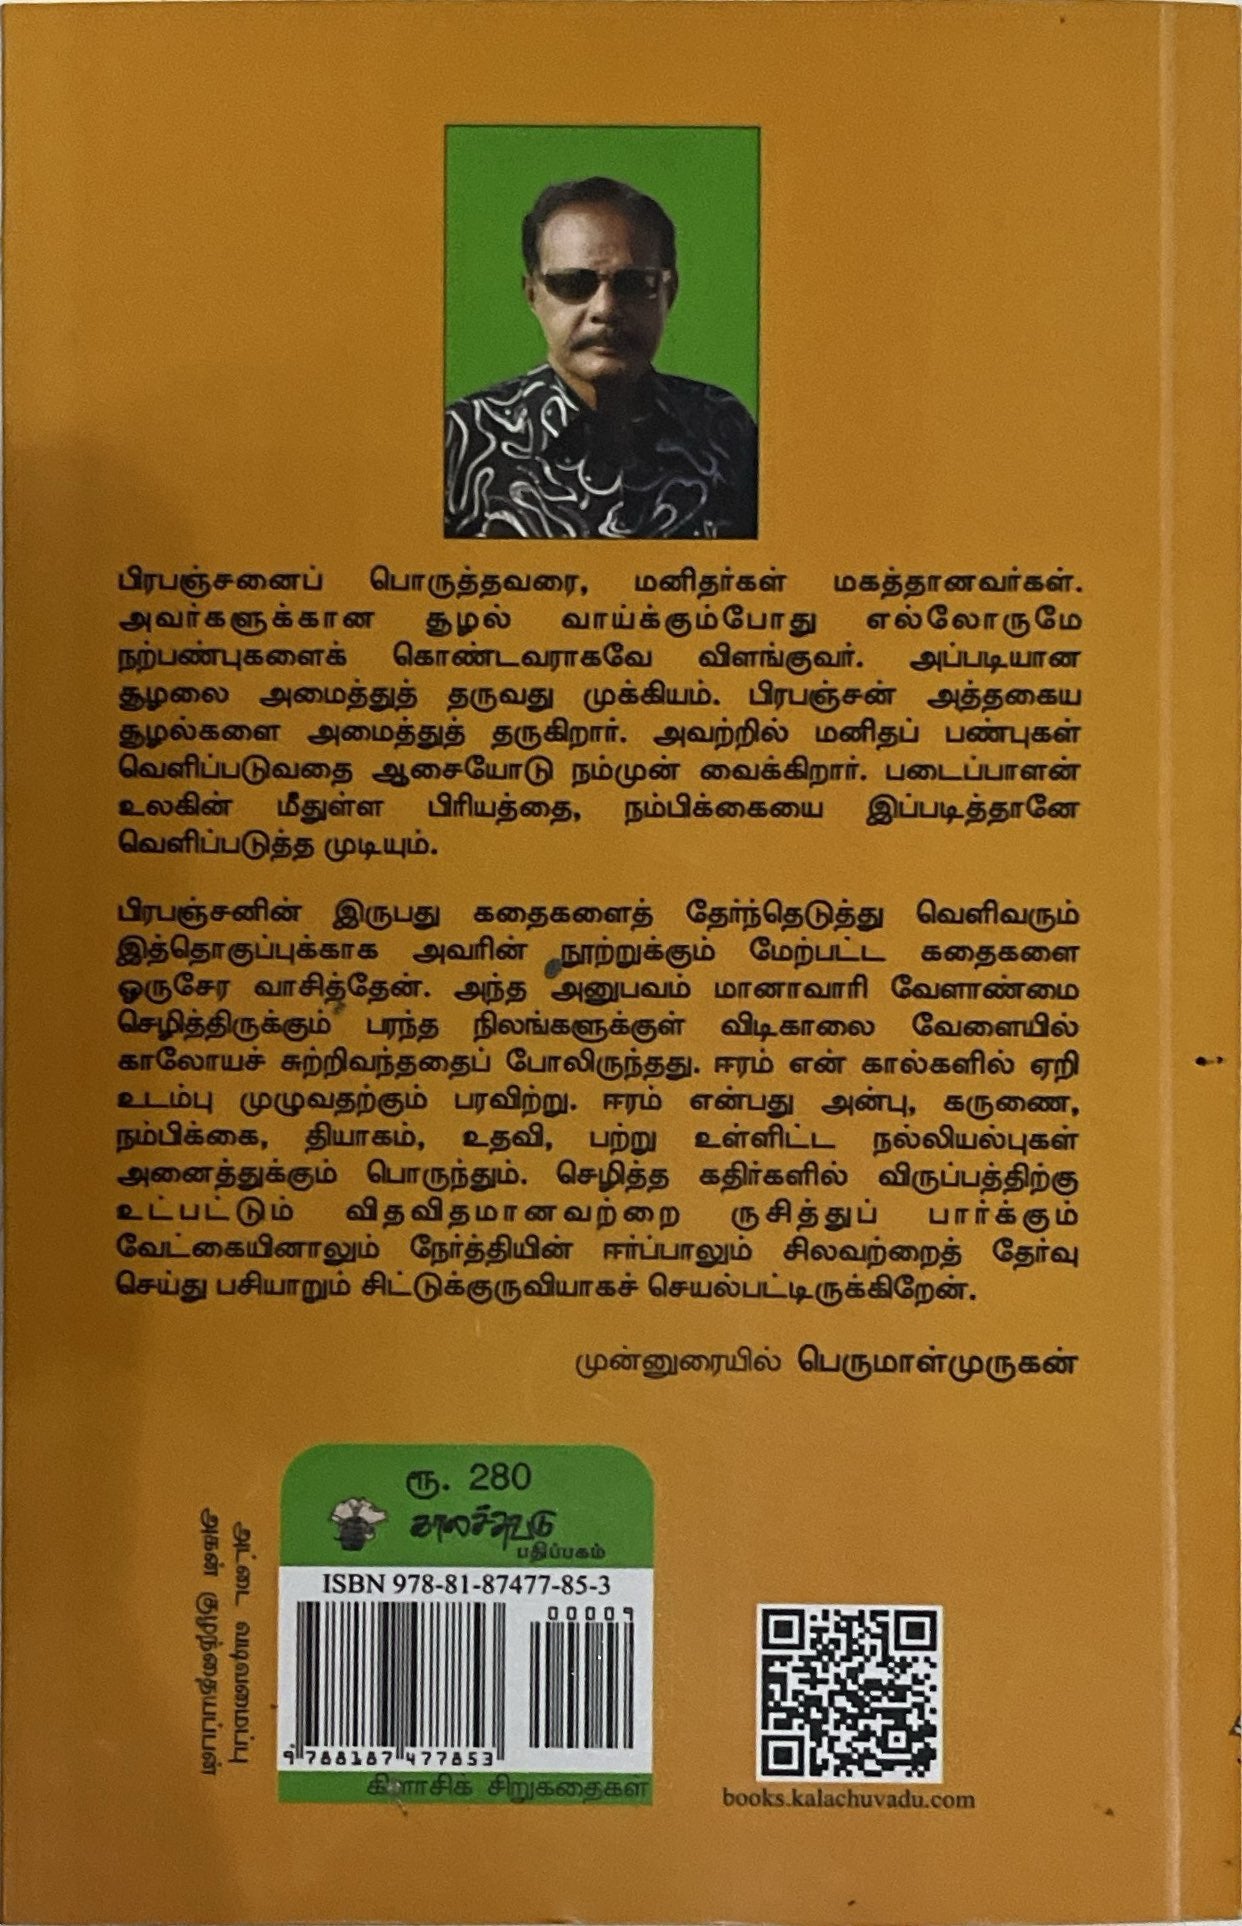 பிரபஞ்சனைப் பொருத்தவரை, மனிதர்கள் மகத்தானவர்கள்.
அவர்களுக்கான சூழல் வாய்க்கும்போது எல்லோருமே
நற்பண்புகளைக் கொண்டவராகவே விளங்குவர். அப்படியான
சூழலை அமைத்துத் தருவது முக்கியம். பிரபஞ்சன் அத்தகைய
சூழல்களை அமைத்துத் தருகிறார். அவற்றில் மனிதப் பண்புகள்
வெளிப்படுவதை ஆசையோடு நம்முன் வைக்கிறார். படைப்பாளன்
உலகின் மீதுள்ள பிரியத்தை, நம்பிக்கையை இப்படித்தானே
வெளிப்படுத்த முடியும்.
பிரபஞ்சனின் இருபது கதைகளைத் தேர்ந்தெடுத்து வெளிவரும்
இத்தொகுப்புக்காக அவரின் நூற்றுக்கும் மேற்பட்ட கதைகளை
ஒருசேர வாசித்தேன். அந்த அனுபவம் மானாவாரி வேளாண்மை
செழித்திருக்கும் பரந்த நிலங்களுக்குள் விடிகாலை வேளையில்
காலோயச் சுற்றிவந்ததைப் போலிருந்தது. ஈரம் என் கால்களில் ஏறி
உடம்பு முழுவதற்கும் பரவிற்று. ஈரம் என்பது அன்பு, கருணை,
நம்பிக்கை, தியாகம், உதவி, பற்று உள்ளிட்ட நல்லியல்புகள்
அனைத்துக்கும் பொருந்தும். செழித்த கதிர்களில் விருப்பத்திற்கு
உட்பட்டும் விதவிதமானவற்றை ருசித்துப் பார்க்கும்
வேட்கையினாலும் நேர்த்தியின் ஈர்ப்பாலும் சிலவற்றைத் தேர்வு
செய்து பசியாறும் சிட்டுக்குருவியாகச் செயல்பட்டிருக்கிறேன்.
முன்னுரையில் பெருமாள்முருகன்
அட்டை வடிவமைப்பு
அகன் குழந்தையப்பன்
ரூ. 280
காலச்சுவடு
பதிப்பகம்
ISBN 978-81-87477-85-3
00009
9 788187 477853
கிளாசிக் சிறுகதைகள்
books.kalachuvadu.com